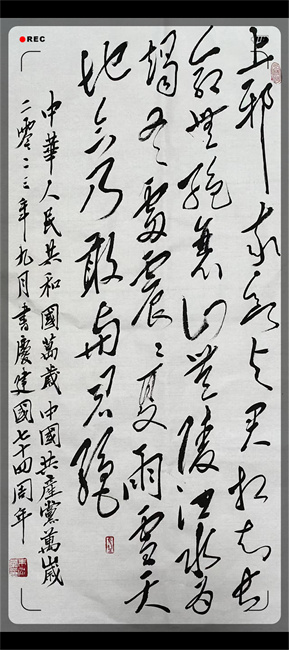 REC
上邪我欲与君相知长
命無絕衰山無陵江水为
竭冬雷震々夏雨雪天
地合乃敢與君绝
中華人民共和國萬歲中國共產黨萬歲
二零二三年九月書慶建國七十四周年